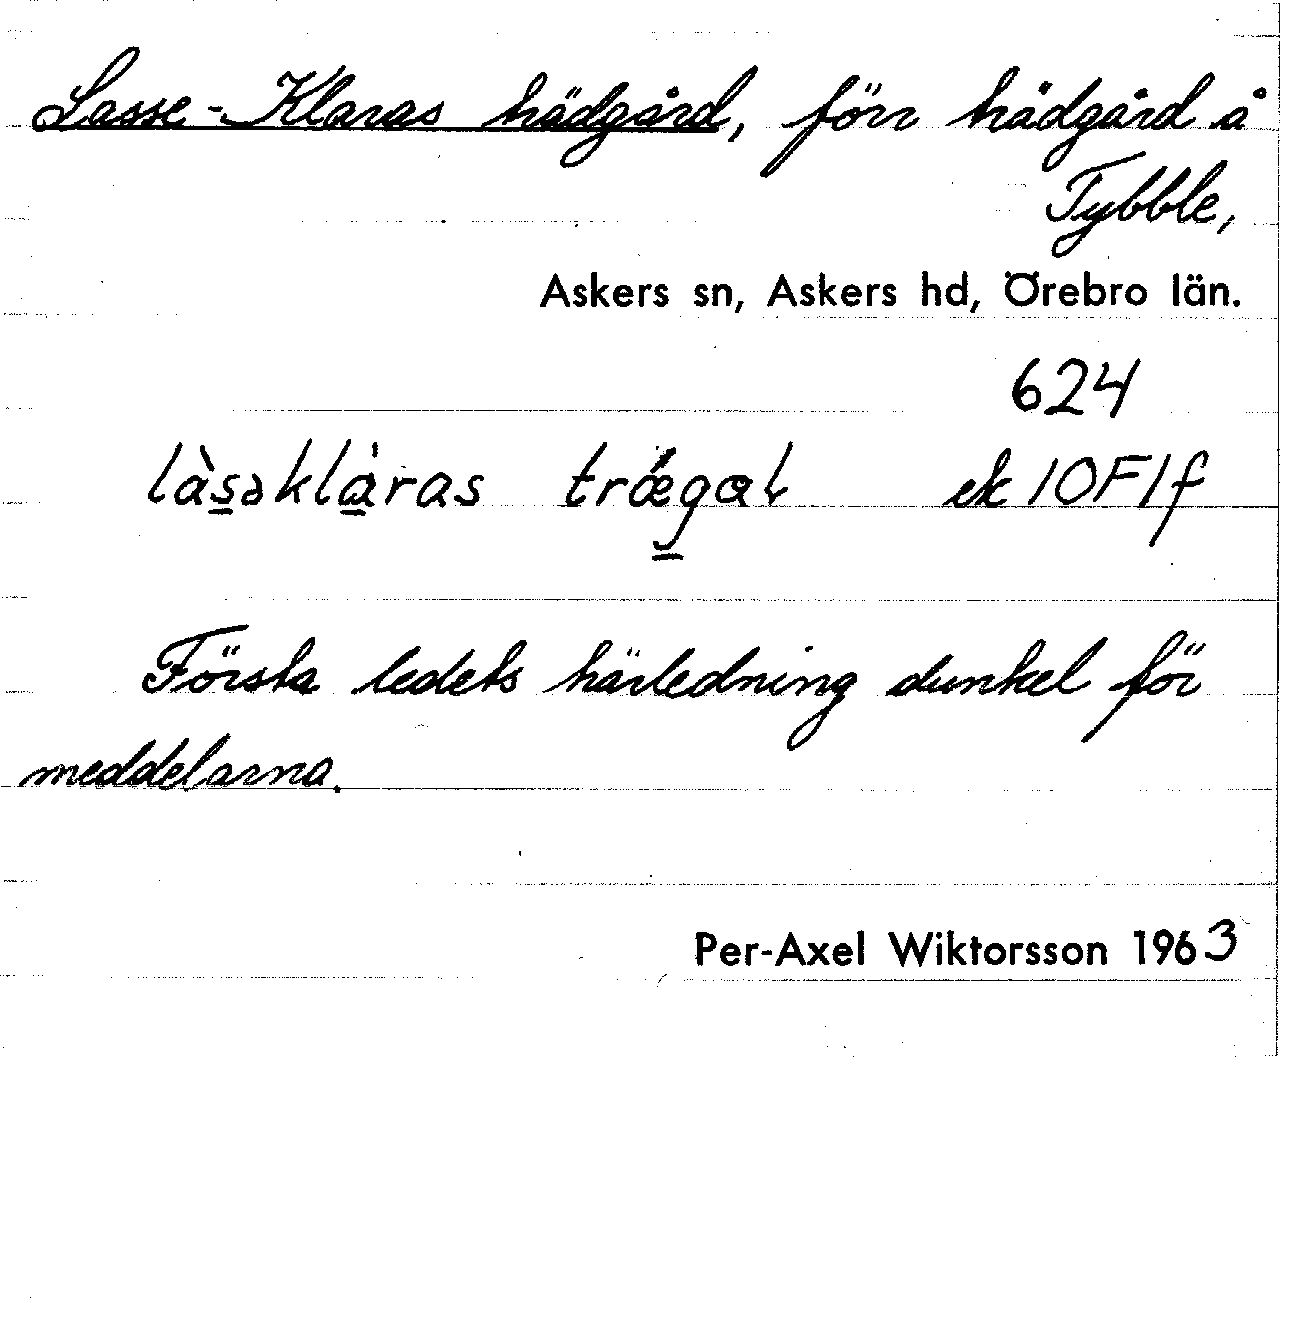 Lasse-Klaras trädgård, förr trädgård å
Tybble,
Askers sn, Askers hd, Örebro län.
624
làsəklàras trǽgaɫ ek 10F1f
Första ledets härledning dunkel för
meddelarna.
Per-Axel Wiktorsson 1963